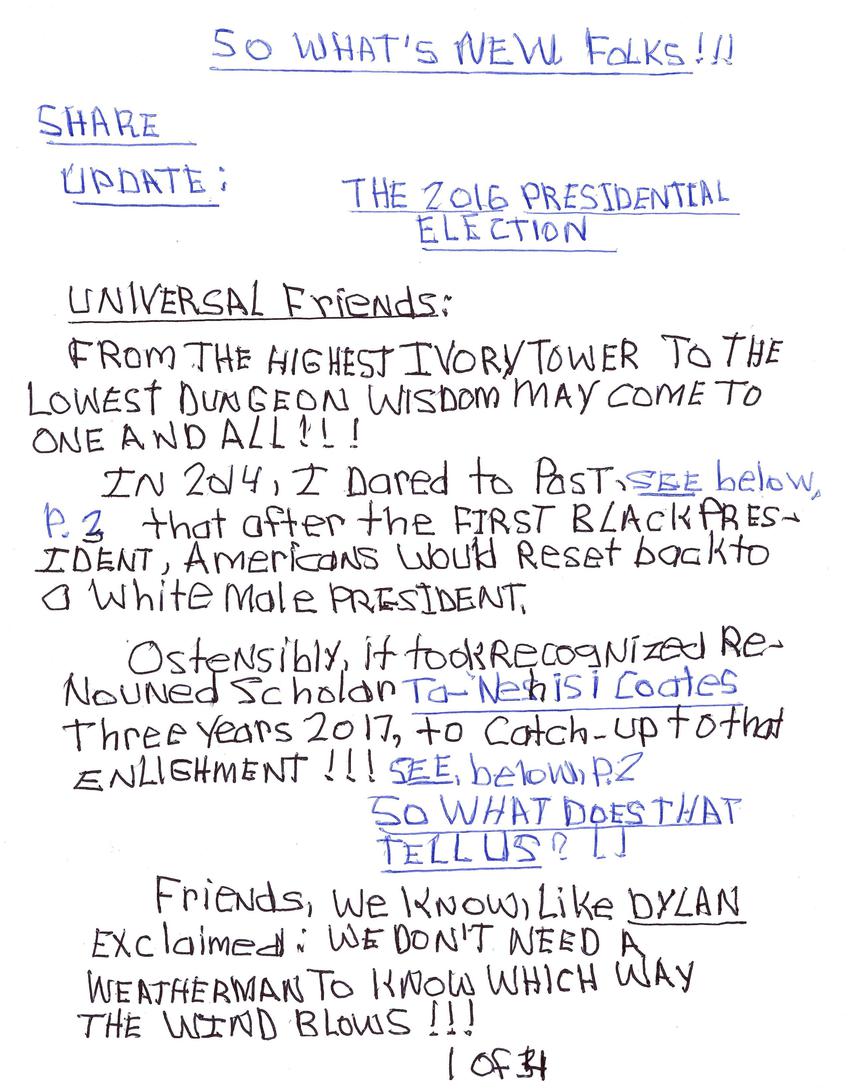 SO WHAT'S NEW FOLKS!!!
SHARE
UPDATE:
THE 2016 PRESIDENTIAL
ELECTION
UNIVERSAL Friends:
FROM THE HIGHEST IVORY TOWER TO THE
LOWEST DUNGEON WISDOM MAY COME TO
ONE AND ALL!!!
IN 2014, I Dared to Post, SEE below,
P. 2 that after the FIRST BLACK PRES-
IDENT, Americans Would Reset back to
a White Male PRESIDENT.
Ostensibly, it took Recognized Re-
Nouned Scholar Ta-Nehisi Coates
Three years 2017, to Catch-up to that
ENLIGHMENT!!! SEE, below, P.2
SO WHAT DOES THAT
TELL US?!!
Friends, We KNOW, Like DYLAN
Exclaimed: WE DON'T NEED A
WEATHERMAN TO KNOW WHICH WAY
THE WIND BLOWS!!!
1 OF